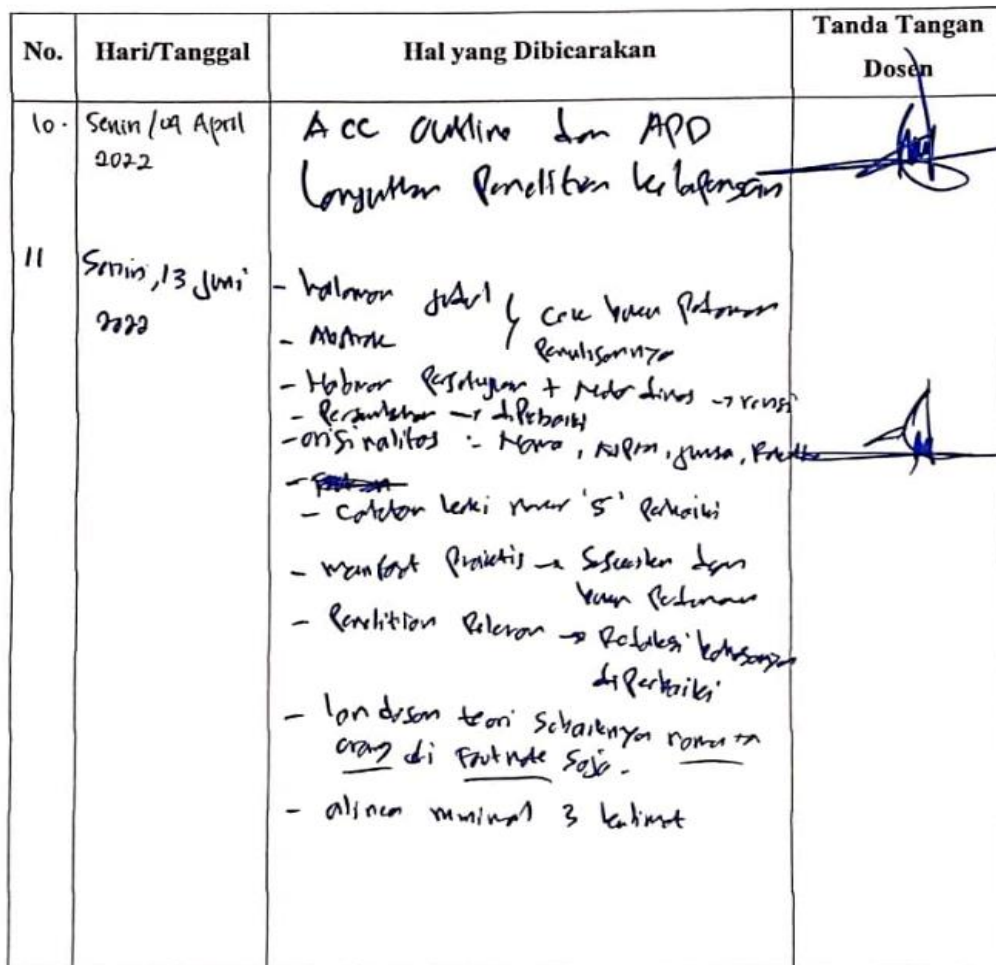 No. Hari/Tanggal Hal yang Dibicarakan Tanda Tangan Dosen
10. Senin/04 April 2022
Acc Outline dan APD
Lanjutkan Penelitian ke lapangan
11 Senin, 13 Juni 2022
- halaman judul } Cek buku Pedoman
- Abstrak Penulisannya
- Halaman Persetujuan + Nota dinas → revisi
- Persembahan → diperbaiki
- orisinalitas : Nama, NPM, Jurusan, Fakultas
- Catatan kaki nomor '5' Perbaiki
- manfaat Praktis → Sesuaikan dgn
buku Pedoman
- Penelitian Relevan → Redaksi bahasanya
diperbaiki
- landasan teori Sebaiknya nama
orang di Footnote Saja.
- alinea minimal 3 kalimat